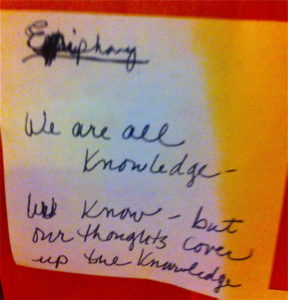 Epiphany
We are all
Knowledge-
We Know - but
our thoughts cover
up the Knowledge